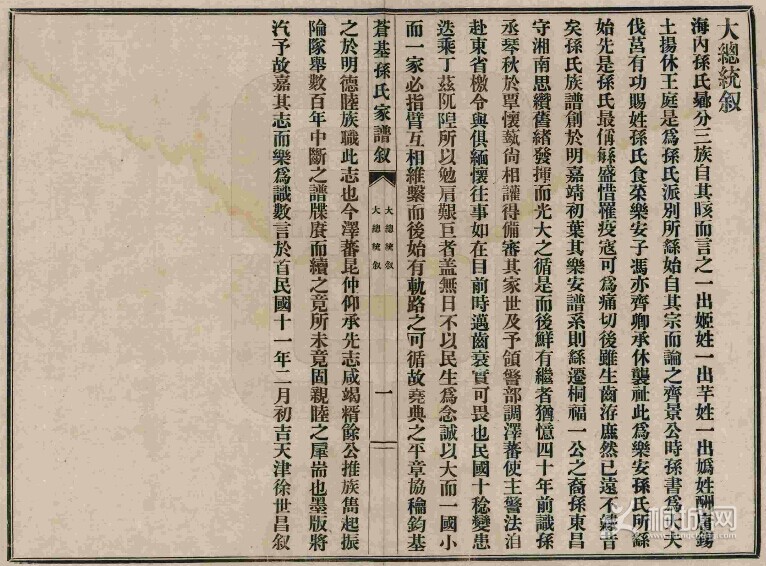 大總統叙
海內孫氏彝分三族自其晐而言之一出姬姓一出芈姓一出媯姓酬庸錫
土揚休王庭是為孫氏派別所繇始自其宗而論之齊景公時孫書為大夫
伐莒有功賜姓孫氏食菜樂安子馮亦齊卿承休襲祉此為樂安孫氏所繇
始先是孫氏最偁緐盛惜罹疫寇可為痛切後雖生齒洊廡然已遠不
矣孫氏族譜創於明嘉靖初葉其樂安譜系則繇遷桐福一公之裔孫東昌
守湘南思纘舊緒發揮而光大之循是而後鮮有繼者猶憶四十年前識孫
丞琴秋於覃懷蓺尚相讙得備審其家世及予領警部調澤蕃使主警法洎
赴東省檄令與俱緬懷往事如在目前時邁齒衰實可畏也民國十稔變患
迭乘丁茲阢隉所以勉肩艱巨者盖無日不以民生為念誠以大而一國小
而一家必指臂互相維繫而後始有軌路之可循故堯典之平章協龢鈞基
蒼基孫氏家譜叙
大總統叙
大總統叙
一
之於明德睦族職此志也今澤蕃昆仲仰承先志咸竭糈餘公推族雋起振
隃隊舉數百年中斷之譜牒賡而續之竟所未竟固親睦之厈耑也墨版將
汔予故嘉其志而樂為識數言於首民國十一年二月初吉天津徐世昌叙
桐城网